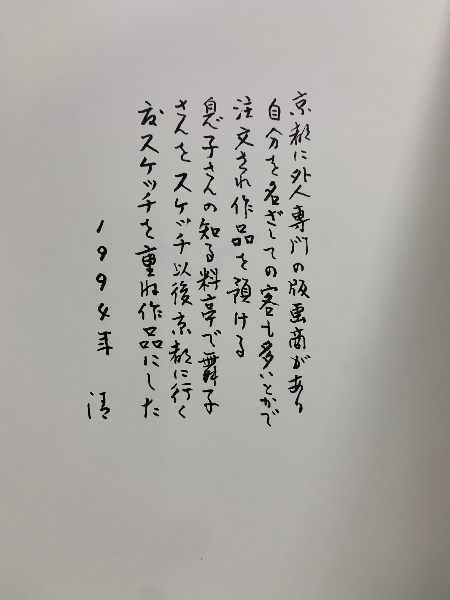 京都に外人専門の版画商があり
自分を名ざしての客も多いとかで
注文され作品を預ける
息子さんの知る料亭で舞子
さんをスケッチ以後京都に行く
度スケッチを重ね作品にした
1994年 清